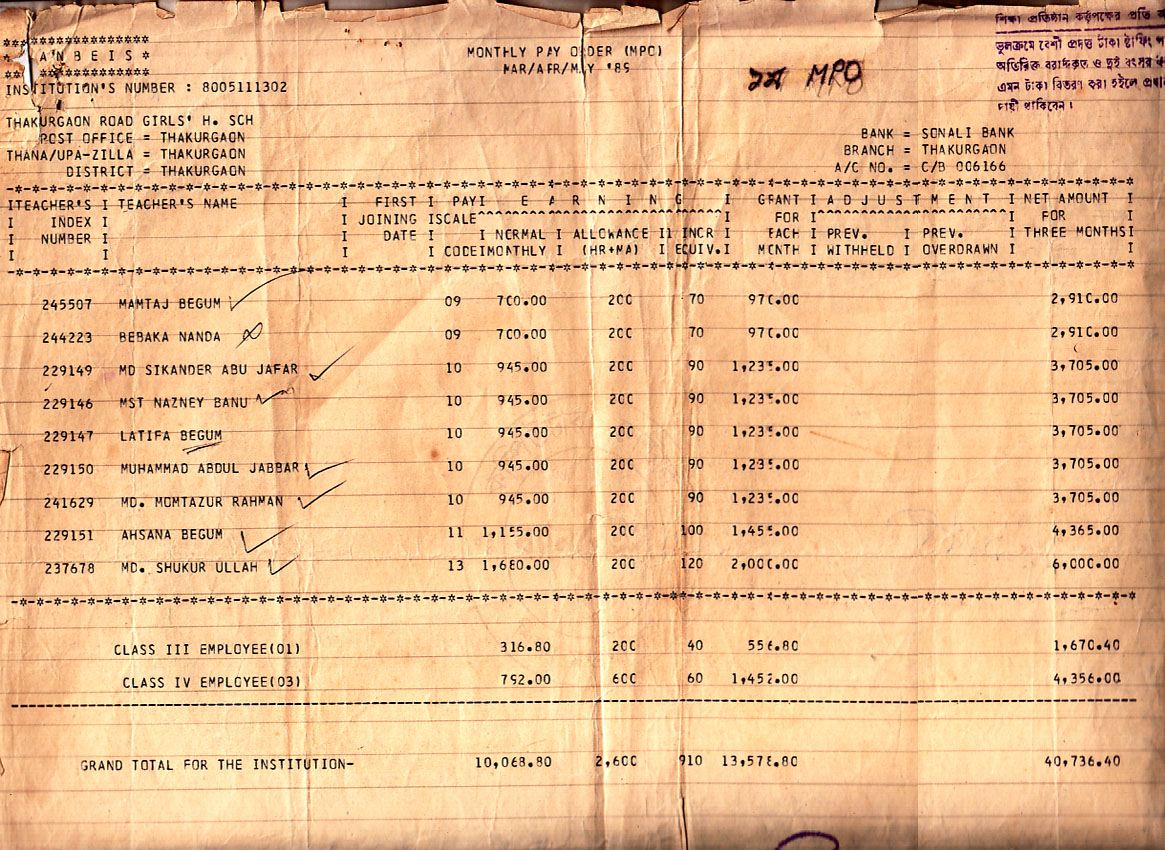 ✲✲✲✲✲✲✲✲✲✲✲✲✲✲✲✲✲
A N B E I S ✲
✲✲✲✲✲✲✲✲✲✲✲✲✲✲✲✲✲
INSTITUTION'S NUMBER : 8005111302
MONTHLY PAY ORDER (MPO)
MAR/APR/MAY '85
১ম MPO
শিক্ষা প্রতিষ্ঠান কর্তৃপক্ষের প্রতি
ভুলক্রমে বেশী প্রদত্ত টাকা
অতিরিক্ত বরাদ্দকৃত ও দুই বৎসর
এমন টাকা বিতরণ করা হইলে
দায়ী থাকিবেন।
THAKURGAON ROAD GIRLS' H. SCH
POST OFFICE = THAKURGAON
THANA/UPA-ZILLA = THAKURGAON
DISTRICT = THAKURGAON
BANK = SONALI BANK
BRANCH = THAKURGAON
A/C NO. = C/B 006166
ITEACHER'S I TEACHER'S NAME I FIRST I PAYI E A R N I N G I GRANT I A D J U S T M E N T I NET AMOUNT I
I INDEX I I JOINING ISCALE I FOR I I FOR I
I NUMBER I I DATE I I NORMAL I ALLOWANCE I1 INCR I EACH I PREV. I PREV. I THREE MONTHSI
I I I I CODEIMONTHLY I (HR+MA) I EQUIV.I MONTH I WITHHELD I OVERDRAWN I I
245507 MAMTAJ BEGUM 09 700.00 200 70 970.00 2,910.00
244223 BEBAKA NANDA 09 700.00 200 70 970.00 2,910.00
229149 MD SIKANDER ABU JAFAR 10 945.00 200 90 1,235.00 3,705.00
229146 MST NAZNEY BANU 10 945.00 200 90 1,235.00 3,705.00
229147 LATIFA BEGUM 10 945.00 200 90 1,235.00 3,705.00
229150 MUHAMMAD ABDUL JABBAR 10 945.00 200 90 1,235.00 3,705.00
241629 MD. MOMTAZUR RAHMAN 10 945.00 200 90 1,235.00 3,705.00
229151 AHSANA BEGUM 11 1,155.00 200 100 1,455.00 4,365.00
237678 MD. SHUKUR ULLAH 13 1,680.00 200 120 2,000.00 6,000.00
CLASS III EMPLOYEE(01) 316.80 200 40 556.80 1,670.40
CLASS IV EMPLOYEE(03) 792.00 600 60 1,452.00 4,356.00
GRAND TOTAL FOR THE INSTITUTION- 10,068.80 2,600 910 13,578.80 40,736.40